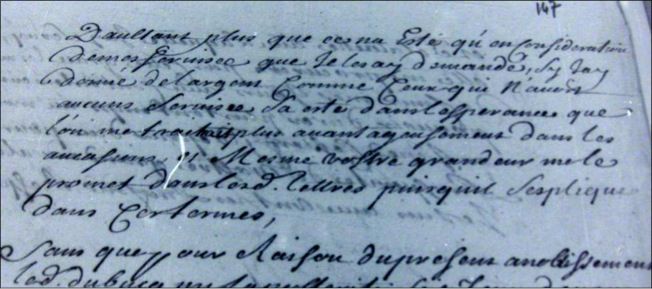 147
Daultant plus que ce na Esté qu'en Consideration
de mes services que Je les ay demandé, sy Jay
donné de largent Comme Ceux qui N'avoit
aucuns services Sa esté dans lesperance que
l'on me traitait plus avantageusement dans les
occasions, et Mesme vostre grandeur me le
promet dans lesd. lettres puisquil Sesplique
dans Ces termes,
Sans que pour Raison du present anoblissement
led. dubucq